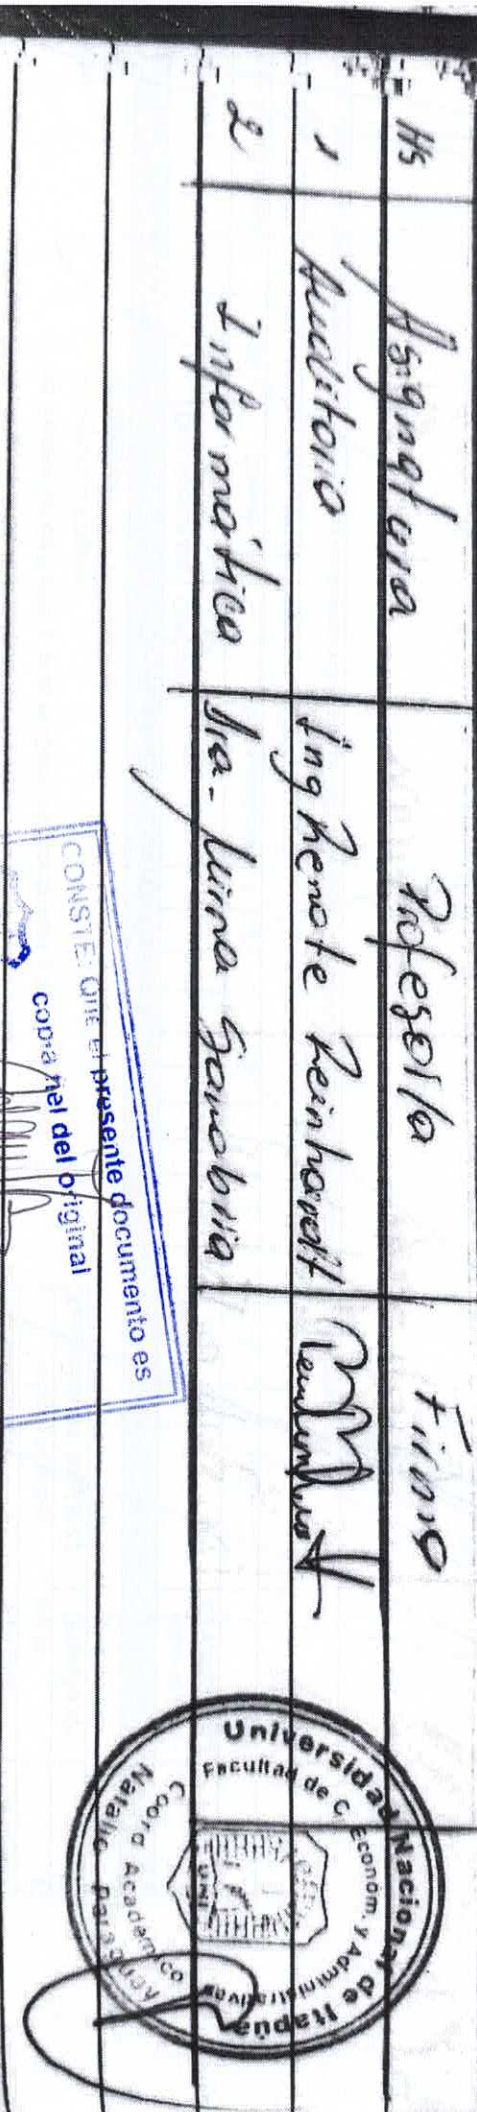 Hs Asignatura Profesor/a Firma
1 Auditoria Ing Renate Reinhardt
2 Informática Dra. Mirna Sanabria
CONSTE: Que el presente documento es
copia fiel del original
Universidad Nacional de Itapúa
Facultad de C. Econom. y Administrativas
Coord Académico
UNI
Natalio Paraguay